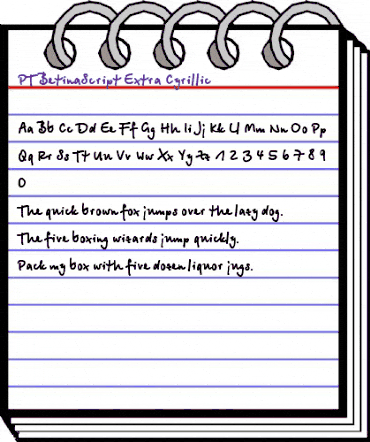 PT BetinaScript Extra Cyrillic
Aa Bb Cc Dd Ee Ff Gg Hh Ii Jj Kk Ll Mm Nn Oo Pp
Qq Rr Ss Tt Uu Vv Ww Xx Yy Zz 1 2 3 4 5 6 7 8 9
0
The quick brown fox jumps over the lazy dog.
The five boxing wizards jump quickly.
Pack my box with five dozen liquor jugs.